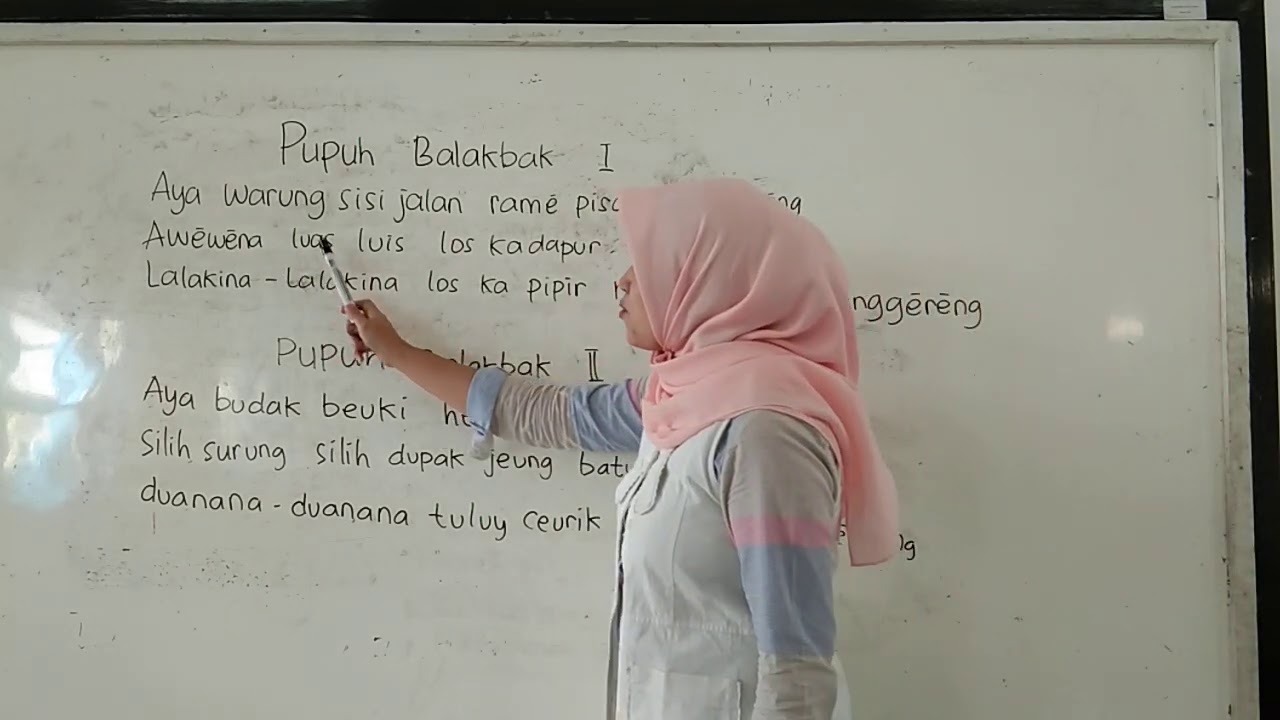 Pupuh Balakbak I
Aya warung sisi jalan ramē
Awēwēna luas luis los kadapur
Lalakina - Lalakina los ka pipir nggērēng
Pupuh Balakbak II
Aya budak beuki
Silih surung silih dupak jeung
duanana - duanana tuluy ceurik